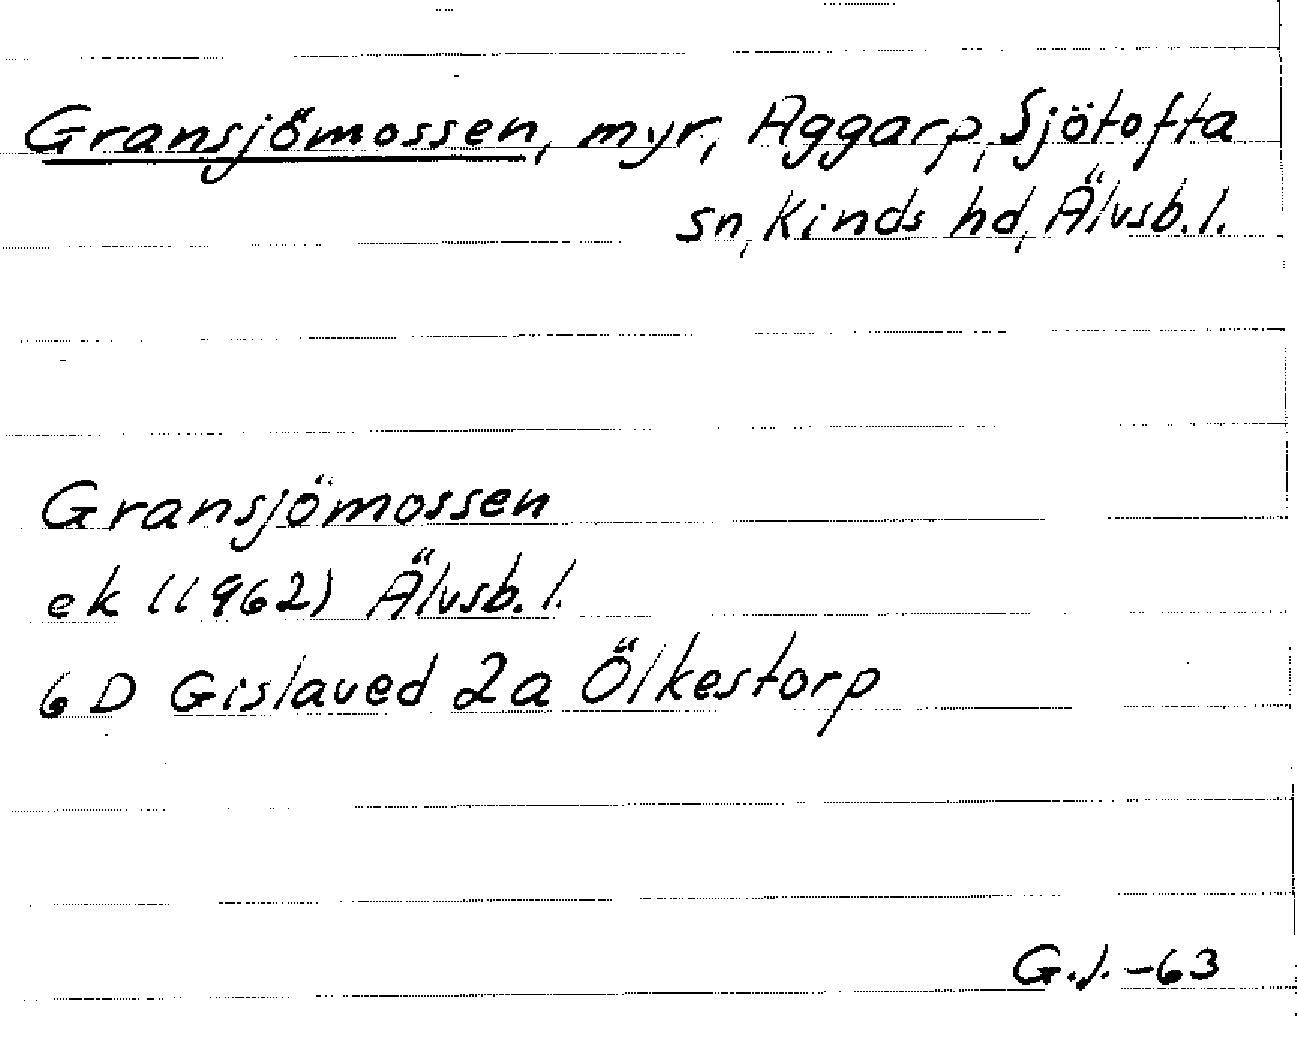 Gransjömossen, myr, Aggarp, Sjötofta
sn, Kinds hd, Älvsb. l.
Gransjömossen
ek (1962) Älvsb. l.
6 D Gislaved 2a Ölkestorp
G.J. -63